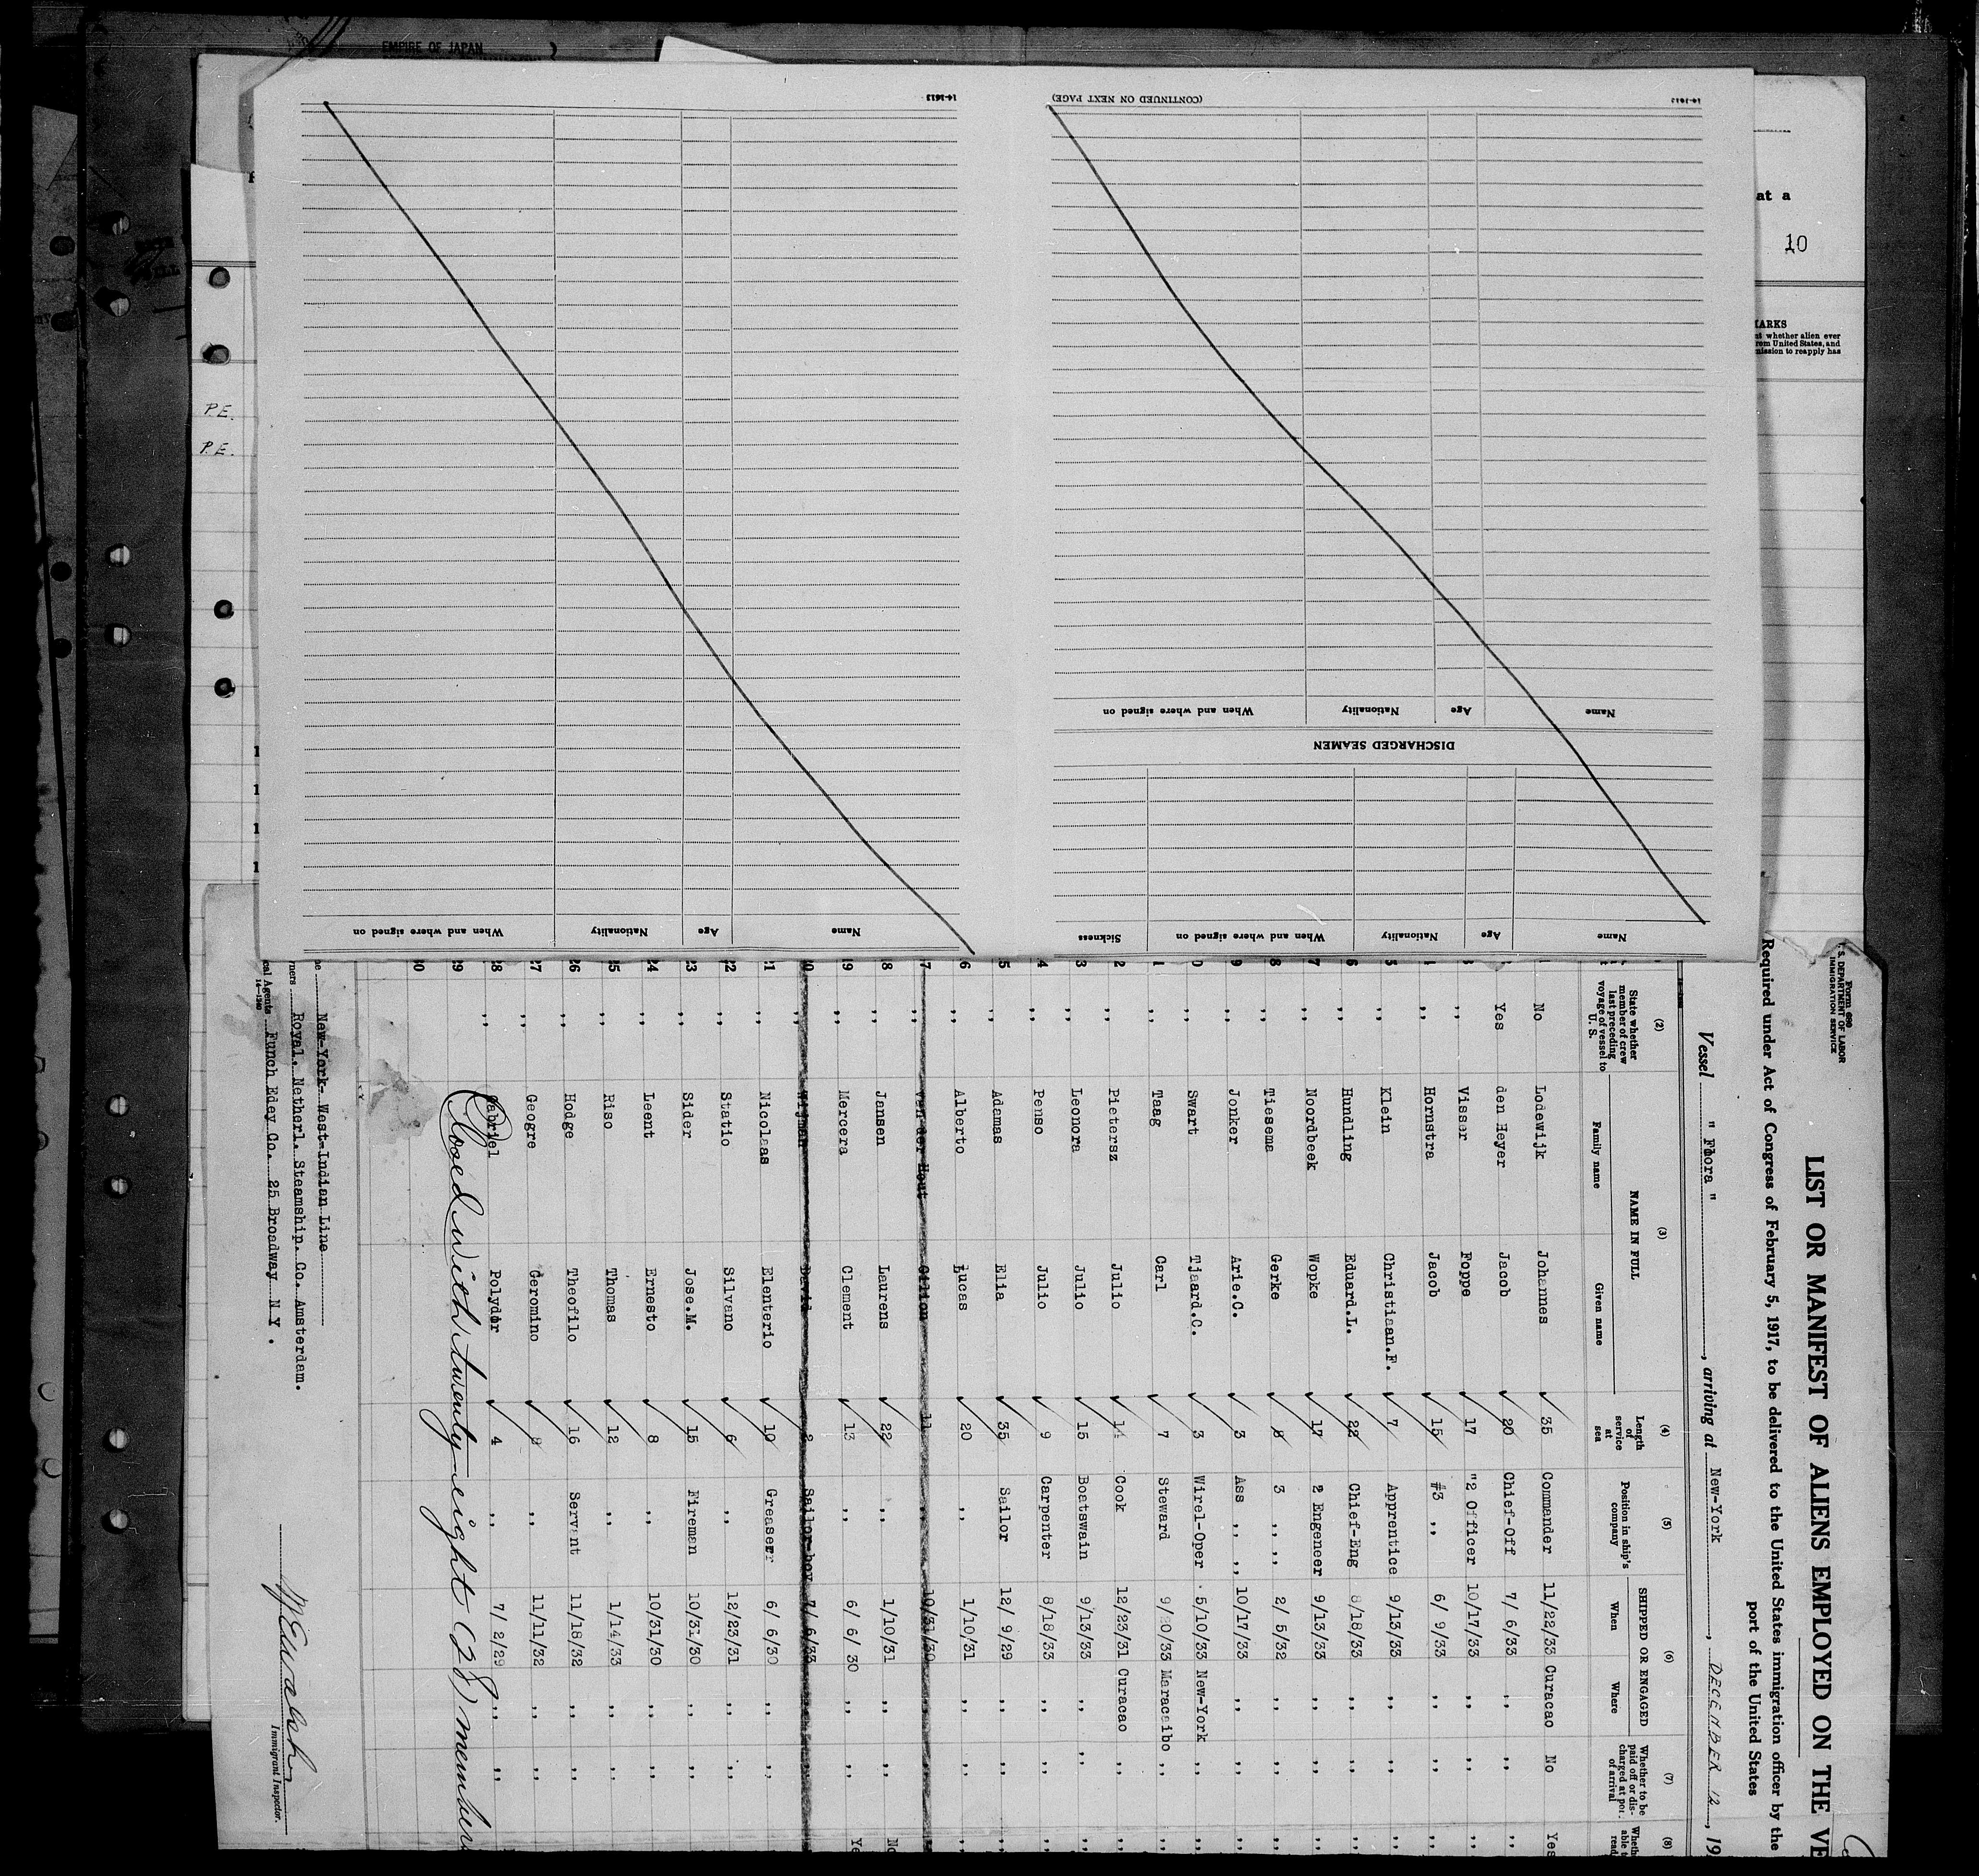 EMPIRE OF JAPAN
at a
10
MARKS
whether alien ever
from United States, and
permission to reapply has
P.E.
P.E.
14-1613
(CONTINUED ON NEXT PAGE)
14-1613
When and where signed on Nationality Age Name
DISCHARGED SEAMEN
Name Age Nationality When and where signed on
Name Age Nationality When and where signed on Sickness
Form 680
U. S. DEPARTMENT OF LABOR
IMMIGRATION SERVICE
LIST OR MANIFEST OF ALIENS EMPLOYED ON THE VE
Required under Act of Congress of February 5, 1917, to be delivered to the United States immigration officer by the
port of the United States
Vessel " Flora ", arriving at New-York, DECEMBER 12, 19
(2) (3) (4) (5) (6) (7) (8)
State whether member of crew last preceding voyage of vessel to U. S.
NAME IN FULL
Family name Given name
Length of service at sea
Position in ship's company
SHIPPED OR ENGAGED
When Where
Whether to be paid off or discharged at port of arrival
No Lodewijk Johannes 35 Commander 11/22/33 Curacao No Yes
Yes den Heyer Jacob 20 Chief-Off 7/ 6/33 ,, ,, ,,
,, Visser Poppe 17 "2 Officer 10/17/33 ,, ,, ,,
,, Hornstra Jacob 15 #3 ,, 6/ 9/33 ,, ,, ,,
5 ,, Klein Christiaan.F. 7 Apprentice 9/13/33 ,, ,, ,,
6 ,, Hundling Eduard.L. 22 Chief-Eng 8/18/33 ,, ,, ,,
7 ,, Noordbeek Wopke 17 2 Engeneer 9/13/33 ,, ,, ,,
8 ,, Tiesema Gerke 8 3 ,, ,, 2/ 5/32 ,, ,, ,,
9 ,, Jonker Arie.C. 3 Ass ,, ,, 10/17/33 ,, ,, ,,
0 ,, Swart Tjaard.C. 3 Wirel-Oper 5/10/33 New-York ,, ,,
1 ,, Taag Carl 7 Steward 9/20/33 Maracaibo ,, ,,
2 ,, Pietersz Julio 14 Cook 12/23/31 Curacao ,, ,,
3 ,, Leonora Julio 15 Boatswain 9/13/33 ,, ,, ,,
4 ,, Penso Julio 9 Carpenter 8/18/33 ,, ,, ,,
5 ,, Adamas Elia 35 Sailor 12/ 9/29 ,, ,, ,,
6 ,, Alberto Lucas 20 ,, 1/10/31 ,, ,, ,,
7 ,, van der Hout 11 ,, 10/31/30 ,,
18 ,, Jansen Laurens 22 ,, 1/10/31 ,, ,, No
19 ,, Mercera Clement 13 ,, 6/ 6/ 30 ,, ,, Ye
20 ,, David Sailor-boy 7/ 6/33
21 ,, Nicolaas Elenterio 10 Greaser 6/ 6/30 ,, ,,
22 ,, Statio Silvano 6 ,, 12/23/31 ,, ,,
23 ,, Sider Jose.M. 15 Fireman 10/31/30 ,, ,,
24 ,, Leent Ernesto 8 ,, 10/31/30 ,, ,,
25 ,, Riso Thomas 12 ,, 1/14/33 ,, ,,
26 ,, Hodge Theofilo 16 Servant 11/18/32 ,, ,,
27 ,, Geogre Geromino 8 ,, 11/11/32 ,, ,,
28 ,, Gabriel Polydor 4 ,, 7/ 2/29 ,, ,,
29
30
Closed with twenty-eight (28) members
New-York- West-Indian Line
Royal. Netherl. Steamship. Co. Amsterdam.
Agents Funch Edey Co. 25 Broadway N Y .
14-1240
Immigrant Inspector.